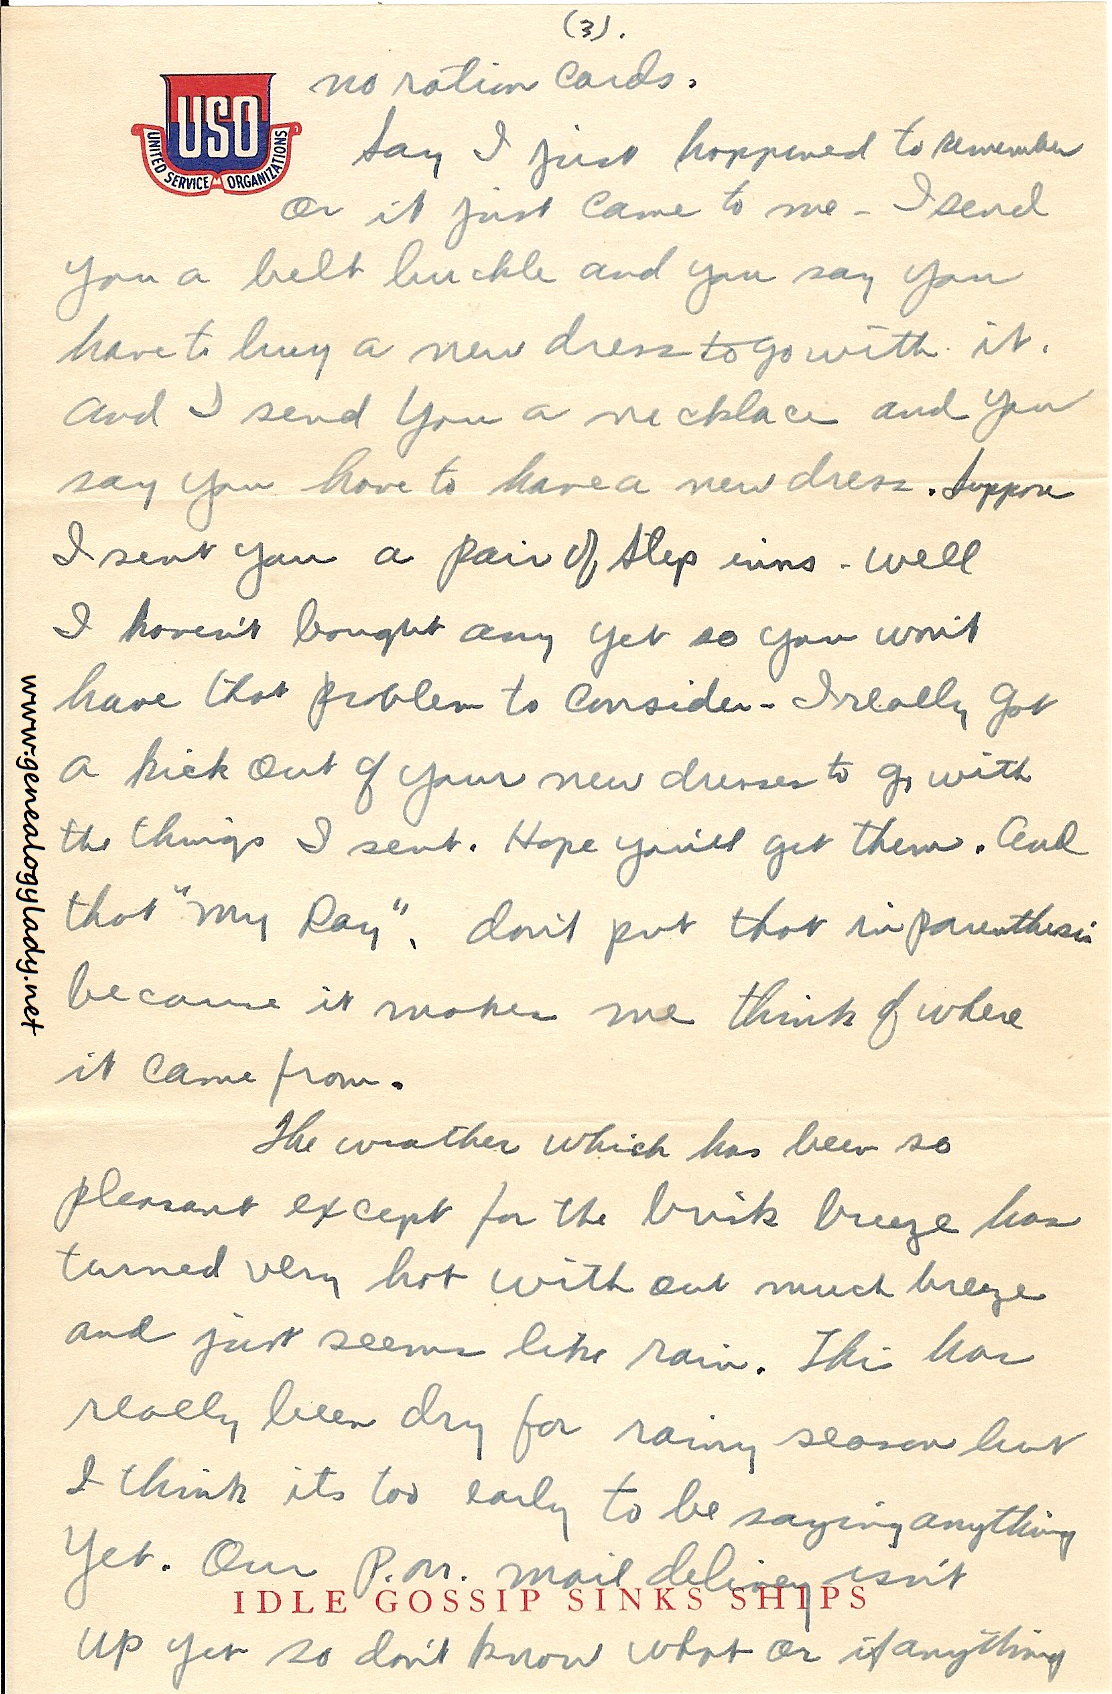 (3).
no ration cards.
USO
UNITED SERVICE ORGANIZATIONS
Say I just happened to remember
or it just came to me - I send
you a belt buckle and you say you
have to buy a new dress to go with it.
and I send you a necklace and you
say you have to have a new dress. Suppose
I sent you a pair of step inns - well
I haven't bought any yet so you won't
have that problem to consider - I really got
a kick out of your new dresses to go with
the things I sent. Hope you'll get them. And
that "My Day", don't put that in parenthesis
because it makes me think of where
it came from.
The weather which has been so
pleasant except for the brisk breeze has
turned very hot with out much breeze
and just seems like rain. This has
really been dry for rainy season but
I think its too early to be saying anything
yet. Our P.M. mail delivey isn't
IDLE GOSSIP SINKS SHIPS
up yet so don't know what or if anything
www.genealogylady.net